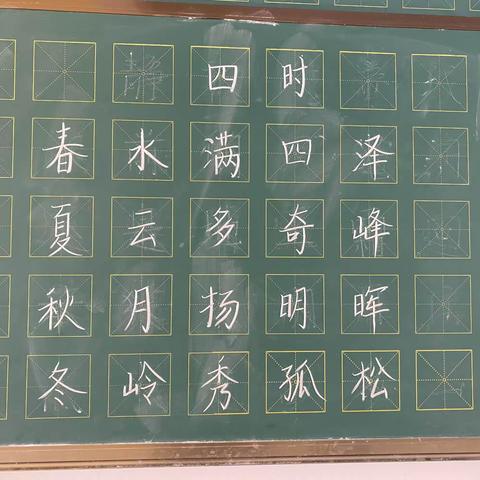 四时
春水满四泽
夏云多奇峰
秋月扬明晖
冬岭秀孤松